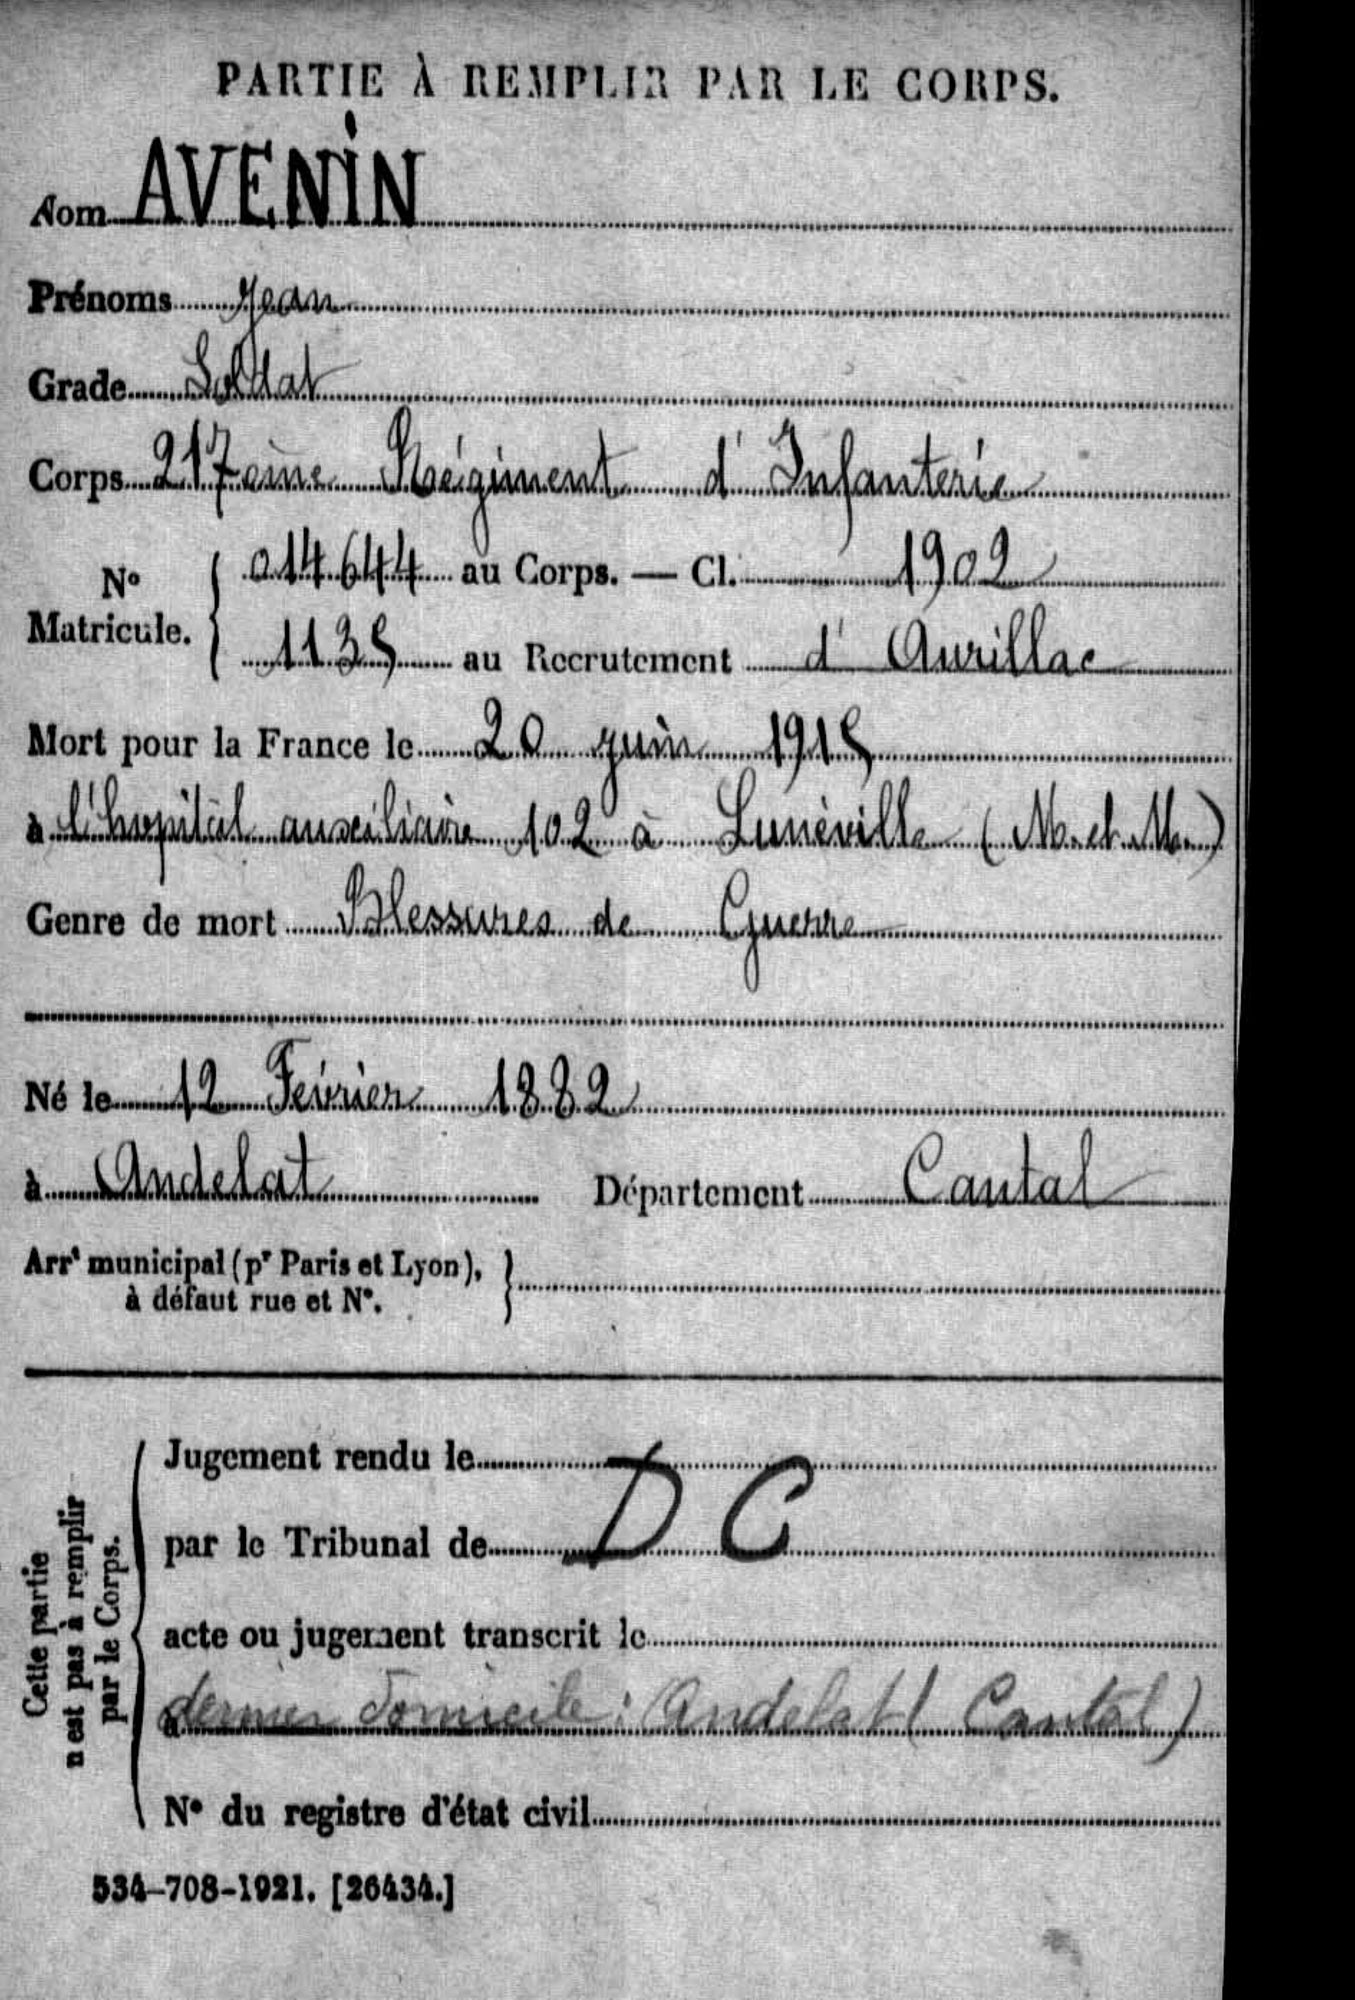 PARTIE À REMPLIR PAR LE CORPS.
Nom AVENIN
Prénoms Jean
Grade Soldat
Corps 217eme Régiment d'Infanterie
N° Matricule. { 014644 au Corps. — Cl. 1902
1135 au Recrutement d'Aurillac
Mort pour la France le 20 juin 1915
à l'hopital auxiliaire 102 à Lunéville (M. et M.)
Genre de mort Blessures de Guerre
Né le 12 Février 1882
à Andelat Département Cantal
Arrt municipal (pr Paris et Lyon), à défaut rue et N°. }
Cette partie n'est pas à remplir par le Corps.
Jugement rendu le
par le Tribunal de D C
acte ou jugement transcrit le
à dernier domicile : Andelat (Cantal)
N° du registre d'état civil
534-708-1921. [26434.]